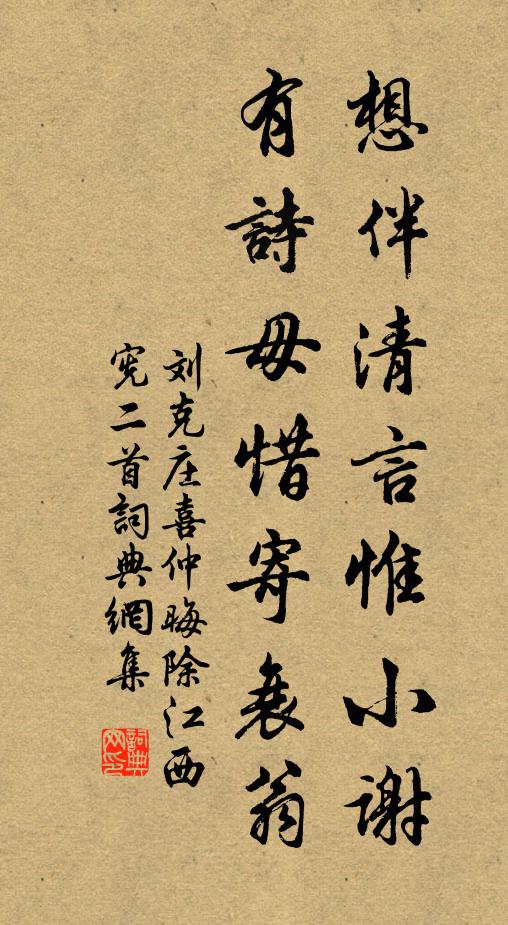 想伴清言惟小谢
有詩毋惜寄衰翁
刘克庄喜仲晦除江西
宪二首詞典網集
詞典网印